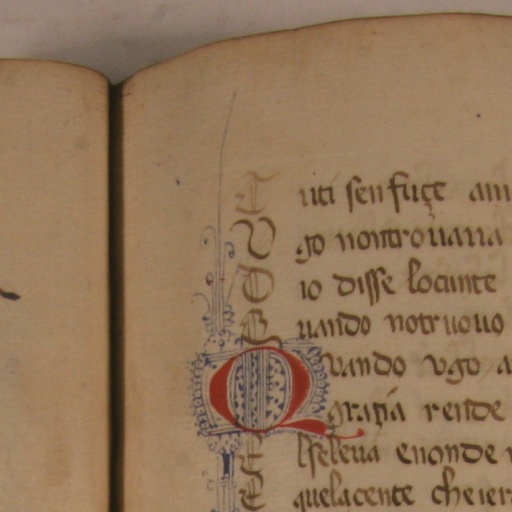 T uti sen fuçe am
V go non trouaua
D io disse lo cunte
uando no truouo
Quando vgo a
gratia rende
E lseleua enonde
E quelacente cheier